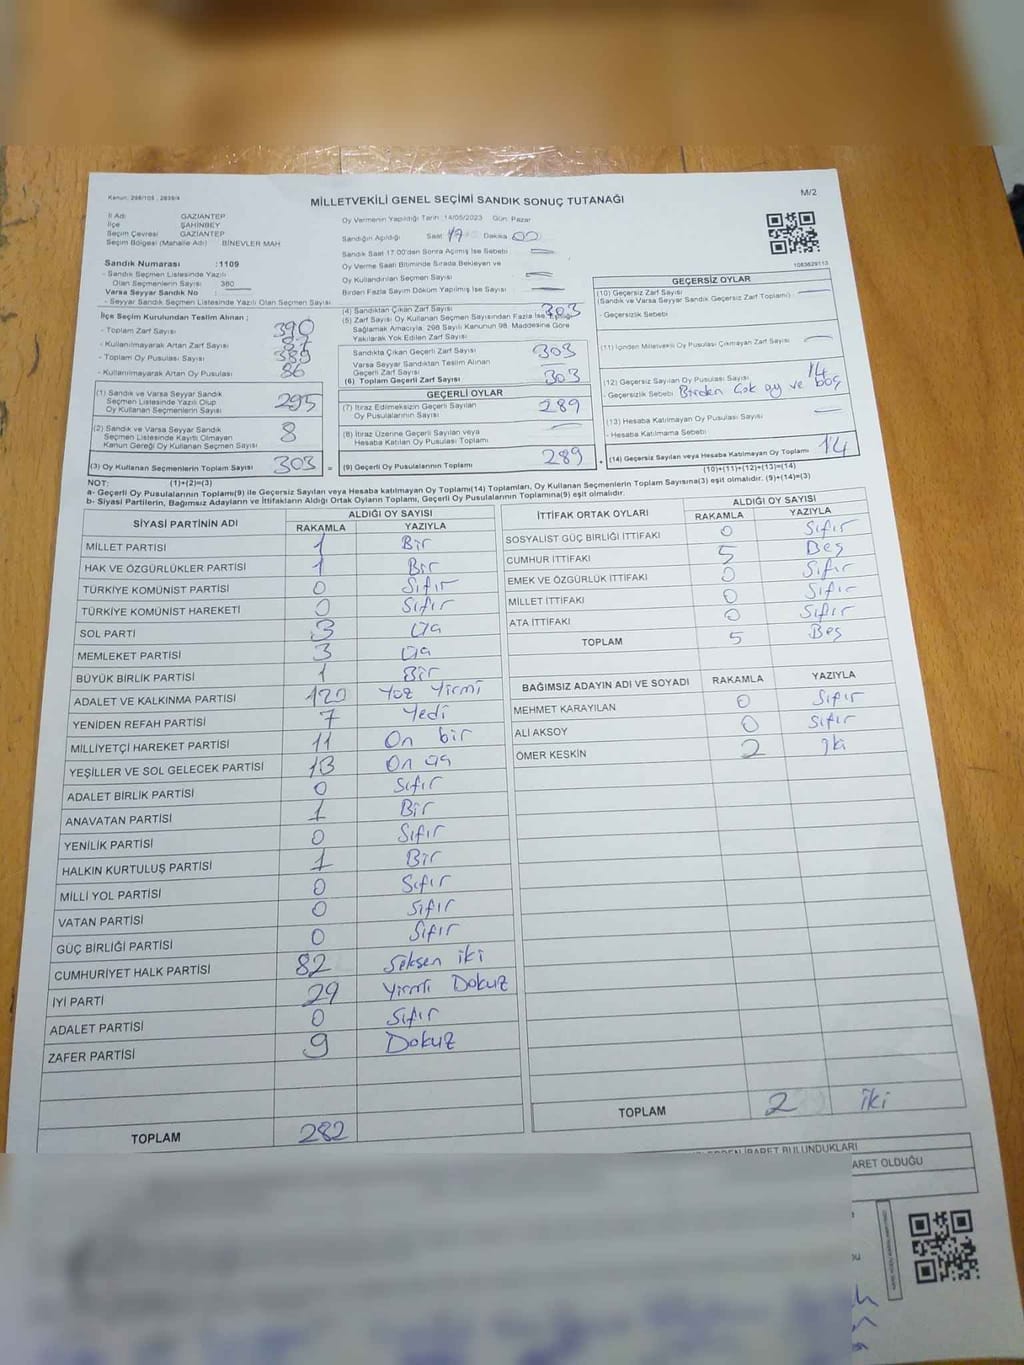 Kanun: 298/105 , 2839/4
M/2
MİLLETVEKİLİ GENEL SEÇİMİ SANDIK SONUÇ TUTANAĞI
İl Adı : GAZİANTEP
İlçe : ŞAHİNBEY
Seçim Çevresi : GAZİANTEP
Seçim Bölgesi (Mahalle Adı) : BİNEVLER MAH
Oy Vermenin Yapıldığı Tarih: 14/05/2023 Gün: Pazar
Sandığın Açıldığı Saat 17 Dakika 00
Sandık Saat 17:00'den Sonra Açılmış İse Sebebi
Oy Verme Saati Bitiminde Sırada Bekleyen ve
Oy Kullandırılan Seçmen Sayısı
Birden Fazla Sayım Döküm Yapılmış İse Sayısı
1083829113
Sandık Numarası : 1109
- Sandık Seçmen Listesinde Yazılı
Olan Seçmenlerin Sayısı : 380
Varsa Seyyar Sandık No :
- Seyyar Sandık Seçmen Listesinde Yazılı Olan Seçmen Sayısı
İlçe Seçim Kurulundan Teslim Alınan ;
- Toplam Zarf Sayısı 390
- Kullanılmayarak Artan Zarf Sayısı 87
- Toplam Oy Pusulası Sayısı 389
- Kullanılmayarak Artan Oy Pusulası 86
(1) Sandık ve Varsa Seyyar Sandık
Seçmen Listesinde Yazılı Olup
Oy Kullanan Seçmenlerin Sayısı 295
(2) Sandık ve Varsa Seyyar Sandık
Seçmen Listesinde Kayıtlı Olmayan
Kanun Gereği Oy Kullanan Seçmen Sayısı 8
(3) Oy Kullanan Seçmenlerin Toplam Sayısı 303 =
(4) Sandıktan Çıkan Zarf Sayısı 303
(5) Zarf Sayısı Oy Kullanan Seçmen Sayısından Fazla İse, Eşitliği
Sağlamak Amacıyla, 298 Sayılı Kanunun 98. Maddesine Göre
Yakılarak Yok Edilen Zarf Sayısı
Sandıkta Çıkan Geçerli Zarf Sayısı 303
Varsa Seyyar Sandıktan Teslim Alınan
Geçerli Zarf Sayısı
(6) Toplam Geçerli Zarf Sayısı 303
GEÇERLİ OYLAR
(7) İtiraz Edilmeksizin Geçerli Sayılan
Oy Pusulalarının Sayısı 289
(8) İtiraz Üzerine Geçerli Sayılan veya
Hesaba Katılan Oy Pusulası Toplamı
(9) Geçerli Oy Pusulalarının Toplamı 289 +
GEÇERSİZ OYLAR
(10) Geçersiz Zarf Sayısı
(Sandık ve Varsa Seyyar Sandık Geçersiz Zarf Toplamı) :
- Geçersizlik Sebebi
(11) İçinden Milletvekili Oy Pusulası Çıkmayan Zarf Sayısı
(12) Geçersiz Sayılan Oy Pusulası Sayısı 14
- Geçersizlik Sebebi Birden Çok oy ve boş
(13) Hesaba Katılmayan Oy Pusulası Sayısı
- Hesaba Katılmama Sebebi
(14) Geçersiz Sayılan veya Hesaba Katılmayan Oy Toplamı 14
NOT: (1)+(2)=(3)
(10)+(11)+(12)+(13)=(14)
a- Geçerli Oy Pusulalarının Toplamı(9) ile Geçersiz Sayılan veya Hesaba katılmayan Oy Toplamı(14) Toplamları, Oy Kullanan Seçmenlerin Toplam Sayısına(3) eşit olmalıdır. (9)+(14)=(3)
b- Siyasi Partilerin, Bağımsız Adayların ve İttifakların Aldığı Ortak Oyların Toplamı, Geçerli Oy Pusulalarının Toplamına(9) eşit olmalıdır.
SİYASİ PARTİNİN ADI
ALDIĞI OY SAYISI
RAKAMLA YAZIYLA
MİLLET PARTİSİ 1 Bir
HAK VE ÖZGÜRLÜKLER PARTİSİ 1 Bir
TÜRKİYE KOMÜNİST PARTİSİ 0 Sıfır
TÜRKİYE KOMÜNİST HAREKETİ 0 Sıfır
SOL PARTİ 3 Üç
MEMLEKET PARTİSİ 3 Üç
BÜYÜK BİRLİK PARTİSİ 1 Bir
ADALET VE KALKINMA PARTİSİ 120 Yüz Yirmi
YENİDEN REFAH PARTİSİ 7 Yedi
MİLLİYETÇİ HAREKET PARTİSİ 11 On bir
YEŞİLLER VE SOL GELECEK PARTİSİ 13 On üç
ADALET BİRLİK PARTİSİ 0 Sıfır
ANAVATAN PARTİSİ 1 Bir
YENİLİK PARTİSİ 0 Sıfır
HALKIN KURTULUŞ PARTİSİ 1 Bir
MİLLİ YOL PARTİSİ 0 Sıfır
VATAN PARTİSİ 0 Sıfır
GÜÇ BİRLİĞİ PARTİSİ 0 Sıfır
CUMHURİYET HALK PARTİSİ 82 Seksen iki
İYİ PARTİ 29 Yirmi Dokuz
ADALET PARTİSİ 0 Sıfır
ZAFER PARTİSİ 9 Dokuz
TOPLAM 282
İTTİFAK ORTAK OYLARI
ALDIĞI OY SAYISI
RAKAMLA YAZIYLA
SOSYALİST GÜÇ BİRLİĞİ İTTİFAKI 0 Sıfır
CUMHUR İTTİFAKI 5 Beş
EMEK VE ÖZGÜRLÜK İTTİFAKI 0 Sıfır
MİLLET İTTİFAKI 0 Sıfır
ATA İTTİFAKI 0 Sıfır
TOPLAM 5 Beş
BAĞIMSIZ ADAYIN ADI VE SOYADI RAKAMLA YAZIYLA
MEHMET KARAYILAN 0 Sıfır
ALİ AKSOY 0 Sıfır
ÖMER KESKİN 2 İki
TOPLAM 2 iki
İBARET BULUNDUKLARI
ARET OLDUĞU